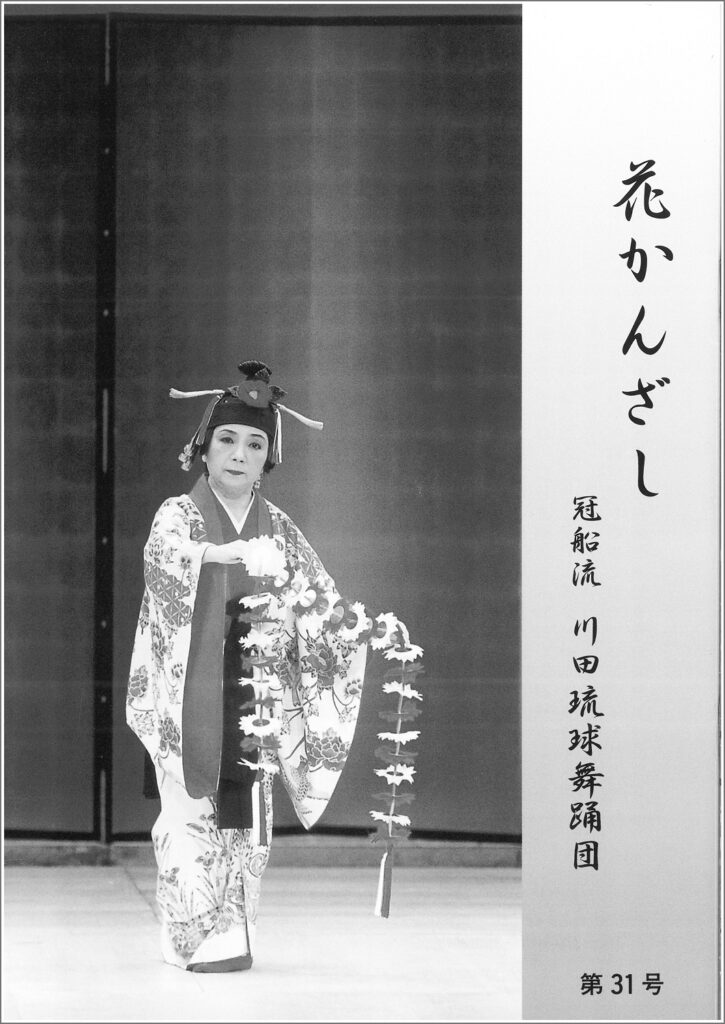 花かんざし
冠船流 川田琉球舞踊団
第31号